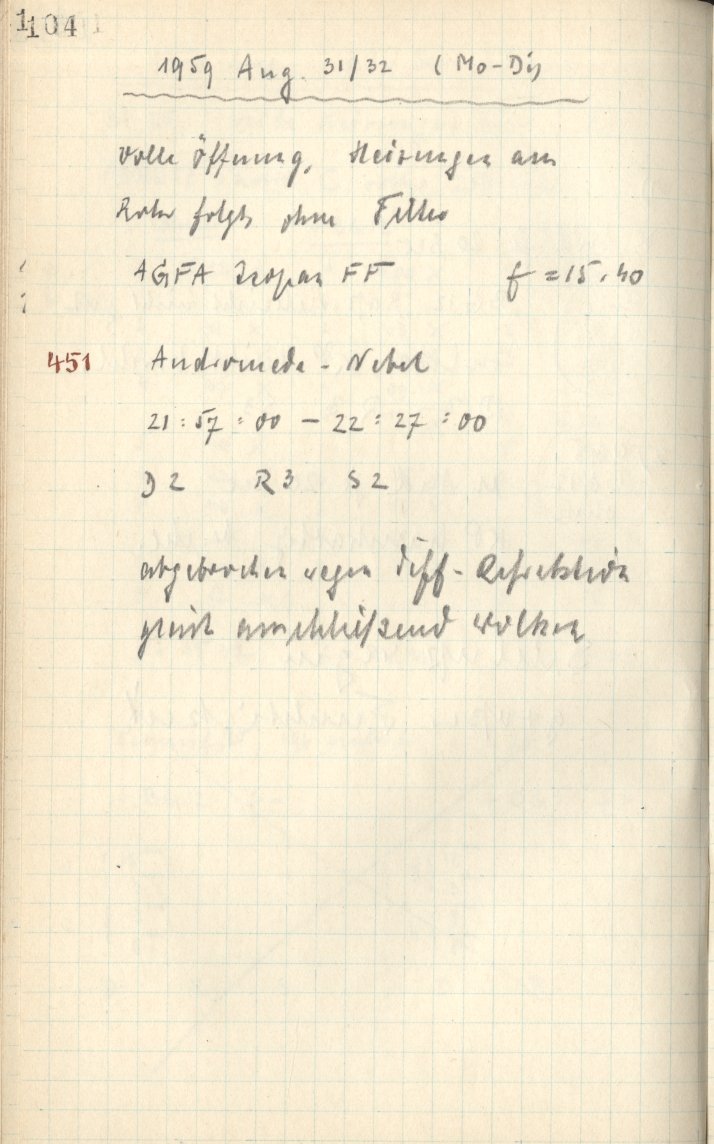 104
1959 Aug. 31/32 (Mo-Di)
Volle Öffnung, Heizungen am
Rohr folgt, ohne Filter
AGFA Isopan FF f = 15.40
451 Andromeda-Nebel
21:57:00 - 22:27:00
D2 R3 S2
abgebrochen wegen Diff-Refraktion
gleich anschließend Wolken